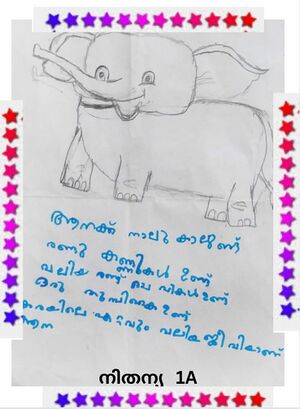 ആനക്ക് നാലു കാലുണ്ട്
രണ്ടു കണ്ണുകൾ ഉണ്ട്
വലിയ രണ്ട് ചെവികൾ ഉണ്ട്
ഒരു തുമ്പികൈ ഉണ്ട്
കരയിലെ ഏറ്റവും വലിയ ജീവിയാണ്
ആന
നിതന്യ 1A